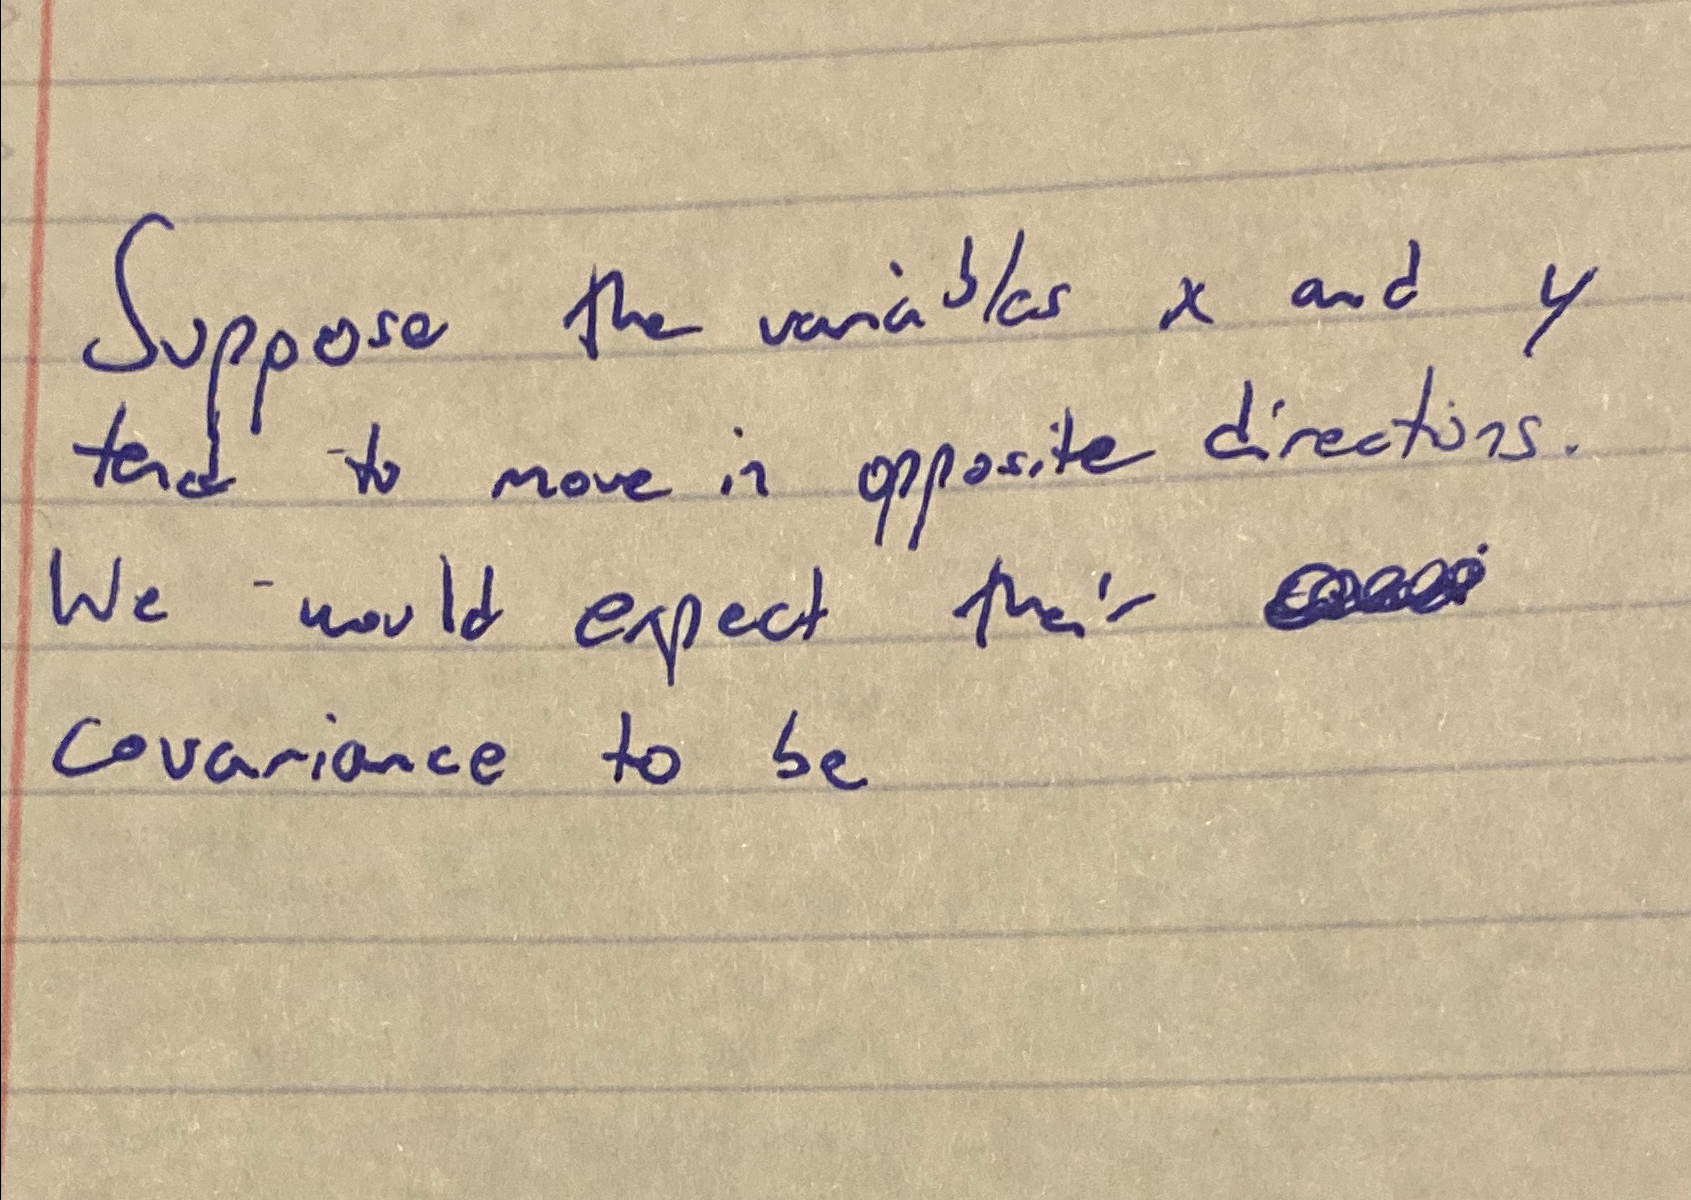 Suppose the variables x and y
tend to move in opposite directions.
We would expect their
covariance to be